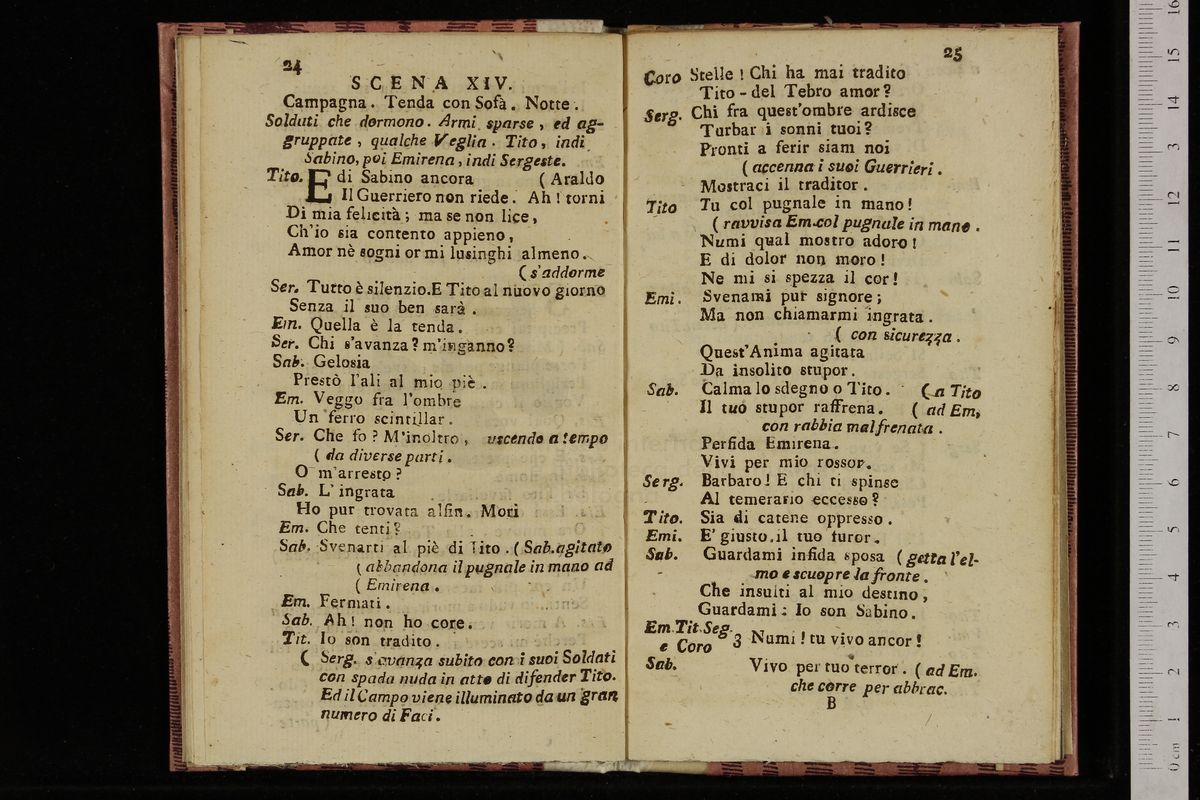 24
SCENA XIV.
Campagna. Tenda con Sofà. Notte.
Soldati che dormono. Armi sparse, ed ag-
gruppate, qualche Veglia. Tito, indi
Sabino, poi Emirena, indi Sergeste.
Tito. E di Sabino ancora ( Araldo
Il Guerriero non riede. Ah! torni
Di mia felicità; ma se non lice,
Ch'io sia contento appieno,
Amor nè sogni or mi lusinghi almeno.
( s'addorme
Ser. Tutto è silenzio. E Tito al nuovo giorno
Senza il suo ben sarà.
Em. Quella è la tenda.
Ser. Chi s'avanza? m'inganno?
Sab. Gelosia
Prestò l'ali al mio piè.
Em. Veggo fra l'ombre
Un ferro scintillar.
Ser. Che fo? M'inoltro, uscendo a tempo
( da diverse parti.
O m'arresto?
Sab. L'ingrata
Ho pur trovata alfin. Mori
Em. Che tenti?
Sab. Svenarti al piè di Tito. ( Sab. agitato
( abbandona il pugnale in mano ad
( Emirena.
Em. Fermati.
Sab. Ah! non ho core.
Tit. Io son tradito.
( Serg. s'avanza subito con i suoi Soldati
con spada nuda in atto di difender Tito.
Ed il Campo viene illuminato da un gran
numero di Faci.
25
Coro Stelle! Chi ha mai tradito
Tito - del Tebro amor?
Serg. Chi fra quest'ombre ardisce
Turbar i sonni tuoi?
Pronti a ferir siam noi
( accenna i suoi Guerrieri.
Mostraci il traditor.
Tito Tu col pugnale in mano!
( ravvisa Em. col pugnale in mano.
Numi qual mostro adoro!
E di dolor non moro!
Ne mi si spezza il cor!
Emi. Svenami pur signore;
Ma non chiamarmi ingrata.
( con sicurezza.
Quest'Anima agitata
Da insolito stupor.
Sab. Calma lo sdegno o Tito. ( a Tito
Il tuo stupor raffrena. ( ad Em,
con rabbia mal frenata.
Perfida Emirena.
Vivi per mio rossor.
Serg. Barbaro! E chi ti spinse
Al temerario eccesso?
Tito. Sia di catene oppresso.
Emi. E' giusto il tuo furor.
Sab. Guardami infida sposa ( getta l'el-
mo e scuopre la fronte.
Che insulti al mio destino,
Guardami: Io son Sabino.
Em. Tit. Seg.
e Coro 3 Numi! tu vivo ancor!
Sab. Vivo per tuo terror. ( ad Em.
che corre per abbrac.
B